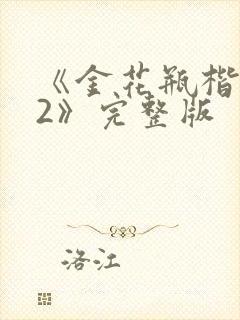 《金花瓶楷
2》完整版
洛江